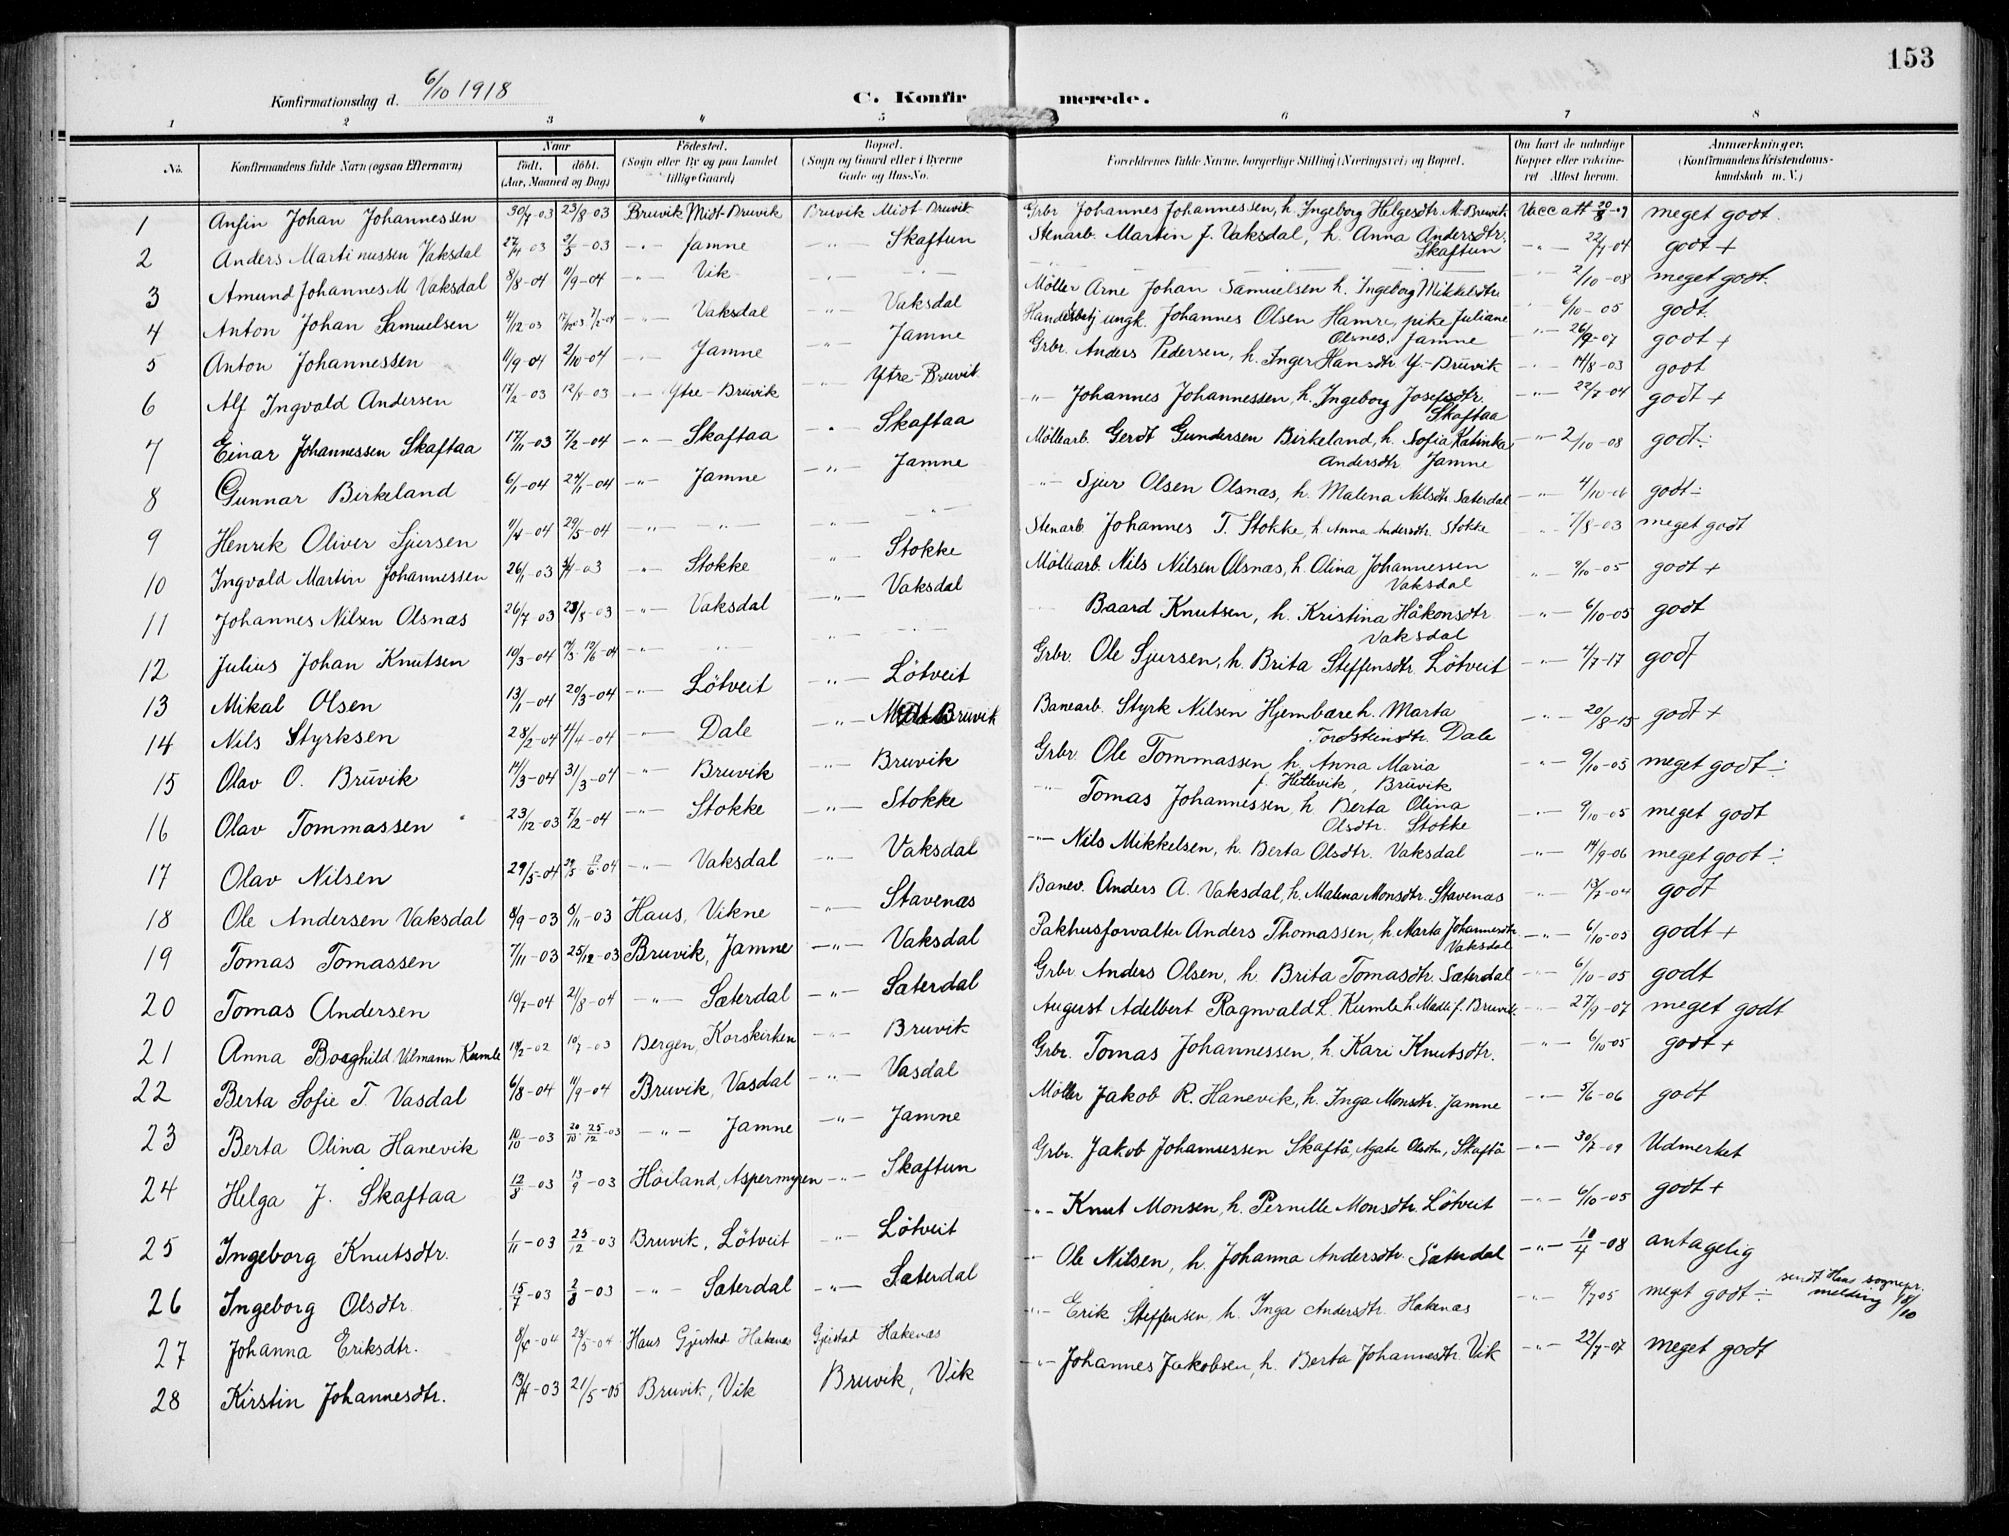 153
Konfirmationsdag d. 6/10 1918
C. Konfirmerede.
1 2 3 4 5 6 7 8
No.
Konfirmandens fulde Navn (ogsaa Efternavn)
Naar
født. døbt.
(Aar, Maaned og Dag)
Fødested.
(Sogn eller By og paa Landet
tillige Gaard)
Bopæl.
(Sogn og Gaard eller i Byerne
Gade og Hus-No.
Forældrenes fulde Navne, borgerlige Stilling (Næringsvei) og Bopæl.
Om havt de naturlige
Kopper eller vakcine-
ret Attest herom.
Anmærkninger.
(Konfirmandens Kristendoms-
kundskab m. V.)
1 Anfin Johan Johannessen 30/7-03 23/8-03 Bruvik Midt-Bruvik Bruvik Midt-Bruvik Grbr Johannes Johannessen, h. Ingeborg Helgesdtr. M-Bruvik Vacc att 20/8-09 meget godt.
2 Anders Martinussen Vaksdal 27/4 03 2/5-03 -"- Jamne -"- Skaftun Stenarb. Martin J. Vaksdal, h. Anna Andersdtr. Skaftun -"- 22/7-04 godt +
3 Amund Johannes M Vaksdal 8/8-04 11/9-04 -"- Vik -"- -"- 2/10-08 meget godt.
4 Anton Johan Samuelsen 4/12-03 7/2-04 -"- Vaksdal -"- Vaksdal Møller Arne Johan Samuelsen h. Ingeborg Mikkelsdtr 6/10-05 godt.
5 Anton Johannessen 11/9-04 2/10-04 -"- Jamne -"- Jamne ungk. Johannes Olsen Hamre, pike Juliane Olsnes, Jamne -"- 26/9-07 godt +
6 Alf Ingvald Andersen 17/2-03 12/4-03 -"- Ytre-Bruvik -"- Ytre-Bruvik Grbr. Anders Pedersen, h. Inger Hansdtr Y-Bruvik -"- 14/8-03 godt
7 Einar Johannessen Skaftaa 17/11-03 7/2-04 -"- Skaftaa -"- Skaftaa -"- Johannes Johannessen, h. Ingeborg Josefsdtr. Skaftaa -"- 22/7-04 godt +
8 Gunnar Birkeland 6/1-04 24/1-04 -"- Jamne -"- Jamne Møllearb. Gerdt Gundersen Birkeland, h. Sofia Katinka Andersdtr Jamne -"- 2/10-08 godt ÷
9 Henrik Oliver Sjursen 11/4-04 29/5-04 -"- -"- -"- -"- Sjur Olsen Olsnas, h. Malena Nilsdtr. Sæterdal -"- 4/10-06 godt ÷
10 Ingvald Martin Johannessen 26/1-03 -03 -"- Stokke -"- Stokke Stenarb Johannes T. Stokke, h Anna Andersdtr. Stokke 7/8-03 meget godt
11 Johannes Nilsen Olsnas 26/7-03 23/8-03 -"- Vaksdal -"- Vaksdal Møllearb. Nils Nilsen Olsnas, h. Olina Johannessen Vaksdal -"- 9/10-05 godt +
12 Julius Johan Knutsen 10/3-04 19/6-04 -"- -"- -"- Baard Knutsen, h. Kristina Håkonsdtr. Vaksdal -"- 6/10-05 godt
13 Mikal Olsen 13/1-04 20/3-04 -"- Løtveit -"- Løtveit Grbr. Ole Sjursen, h. Brita Steffensdtr. Løtveit -"- 4/7-17 godt
14 Nils Styrksen 28/2-04 4/4-04 -"- Dale -"- Bruvik Banearb. Styrk Nilsen Hjembære h. Marta Tordsteinsdtr. Dale -"- 20/8-15 godt +
15 Olav O. Bruvik 14/3-04 31/3-04 -"- Bruvik -"- Bruvik Grbr. Ole Tommassen h. Anna Maria f. Hettevik, Bruvik -"- 9/10-05 meget godt ÷
16 Olav Tommassen 23/12-03 7/2-04 -"- Stokke -"- Stokke -"- Tomas Johannessen, h Berta Olina Olsdtr. Stokke -"- 9/10-05 meget godt
17 Olav Nilsen 29/5-04 29/5 12/6-04 -"- Vaksdal -"- Vaksdal -"- Nils Mikkelsen, h. Berta Olsdtr. Vaksdal -"- 14/9-06 meget godt ÷
18 Ole Andersen Vaksdal 8/9-03 8/11-03 Haus, Vikne -"- Stavenæs Banev. Anders A. Vaksdal, h. Malena Monsdtr. Stavenæs -"- 13/7-04 godt
19 Tomas Tomassen 7/11-03 25/12-03 Bruvik, Jamne -"- Vaksdal Pakhusforvalter Anders Thomassen, h. Marta Johannesdtr Vaksdal -"- 6/10-05 godt +
20 Tomas Andersen 10/7-04 21/8-04 -"- Sæterdal -"- Sæterdal Grbr. Anders Olsen, h. Brita Tomasdtr. Sæterdal -"- 6/10-05 godt
21 Anna Borghild Vilmann Kumle -02 10/7-03 Bergen, Korskirken -"- Bruvik August Adelbert Ragnvald L. Kumle h. f. Bruvik -"- 27/9-07 meget godt
22 Berta Sofie T. Vasdal 6/8-04 11/9-04 Bruvik, Vasdal -"- Vasdal Grbr. Tomas Johannessen, h. Kari Knutsdtr. -"- 6/10-05 godt +
23 Berta Olina Hanevik 10/10-03 20/10 25/12-03 -"- Jamne -"- Jamne Møller Jakob R. Hanevik, h. Inga Monsdtr. Jamne -"- 5/6-06 godt
24 Helga J. Skaftaa 12/8-03 13/9-03 Høiland, Aspermyren -"- Skaftun Grbr. Jakob Johannessen Skaftå, Agate Olsdtr, Skaftå -"- 30/7-09 Udmerket
25 Ingeborg Knutsdtr. 1/11-03 25/12-03 Bruvik, Løtveit -"- Løtveit -"- Knut Monsen, h. Pernille Monsdtr. Løtveit -"- 6/10-05 godt +
26 Ingeborg Olsdtr. 15/7-03 2/8-03 -"- Sæterdal -"- Sæterdal -"- Ole Nilsen, h. Johanna Andersdtr. Sæterdal -"- 10/4-08 antagelig
27 Johanna Eriksdtr. 8/4-04 23/5-04 Haus Gjerstad Hakenæs Gjerstad Hakenæs -"- Erik Steffensen, h. Inga Andersdtr. Hakenæs -"- 4/7 05 meget godt ÷ sendt Haus sognepr. melding 18/10
28 Kirstin Johannesdtr. 13/4-03 21/5-05 Bruvik, Vik Bruvik, Vik -"- Johannes Jakobsen, h. Berta Johannesdtr. Vik -"- 22/7-07 meget godt